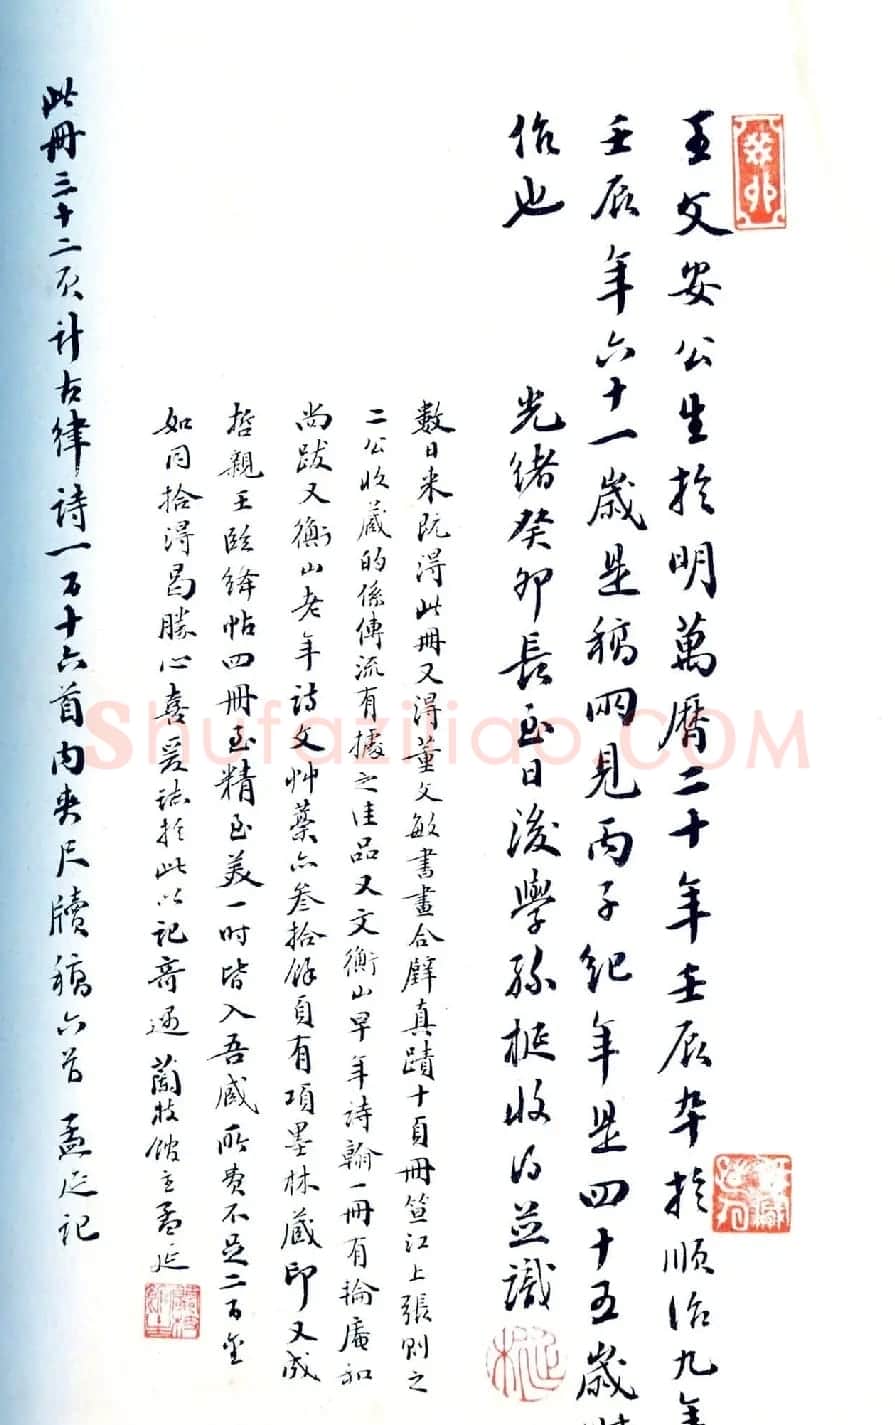 癸卯
王文安公生於明萬曆二十年壬辰卒於順治九年
壬辰年六十一歲是稿兩見丙子紀年是四十五歲時
作也
光緒癸卯長至日後學孫梃收得並識
梃
數日來既得此冊又得董文敏書畫合璧真蹟十頁冊笪江上張則之
二公收藏的係傳流有據之佳品又文衡山早年詩翰一冊有掄庵和
尚跋又衡山老年詩文艸藁六叁拾餘頁有項墨林藏印又成
哲親王臨絳帖四冊至精至美一時皆入吾藏所費不足二百金
如同拾得曷勝心喜爰誌於此以記奇遇 蘭枝館主孟延
此冊三十二頁計古律詩一百十六首內夾尺牘稿六首 孟延記
Shufaziliao.COM